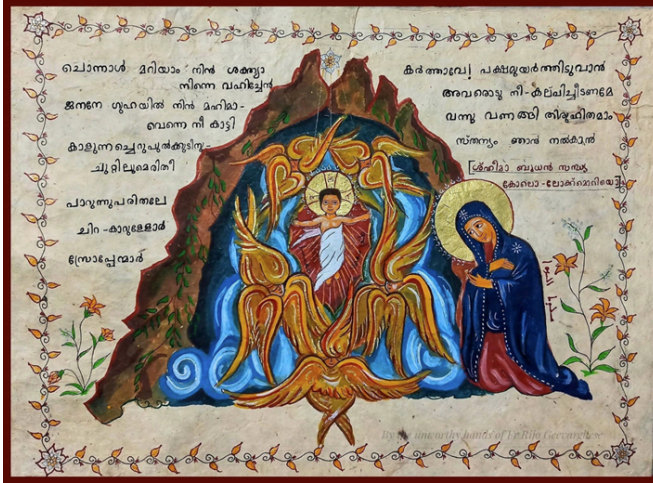 ചൊന്നാൾ മറിയാം നിൻ ശക്ത്യാ
നിന്നെ വഹിച്ചേൻ
ജനനേ ഗുഹയിൽ നിൻ മഹിമാ-
വെന്നെ നീ കാട്ടി
പാറുന്നുപരിതലേ
ചിറ-കാറുള്ളോർ
സ്രോപ്പേന്മാർ
കർത്താവേ! പക്ഷമുയർത്തിടുവാൻ
അവരൊടു നീ-കല്പിച്ചീടണമേ
വന്നു വണങ്ങി തിരുഹിതമാം
സ്തന്യം ഞാൻ നൽകാൻ
[ശ്ഹീമാ ബുധൻ സന്ധ്യ
കോലൊ-
By the unworthy hands of Fr Rijo Geevarghese